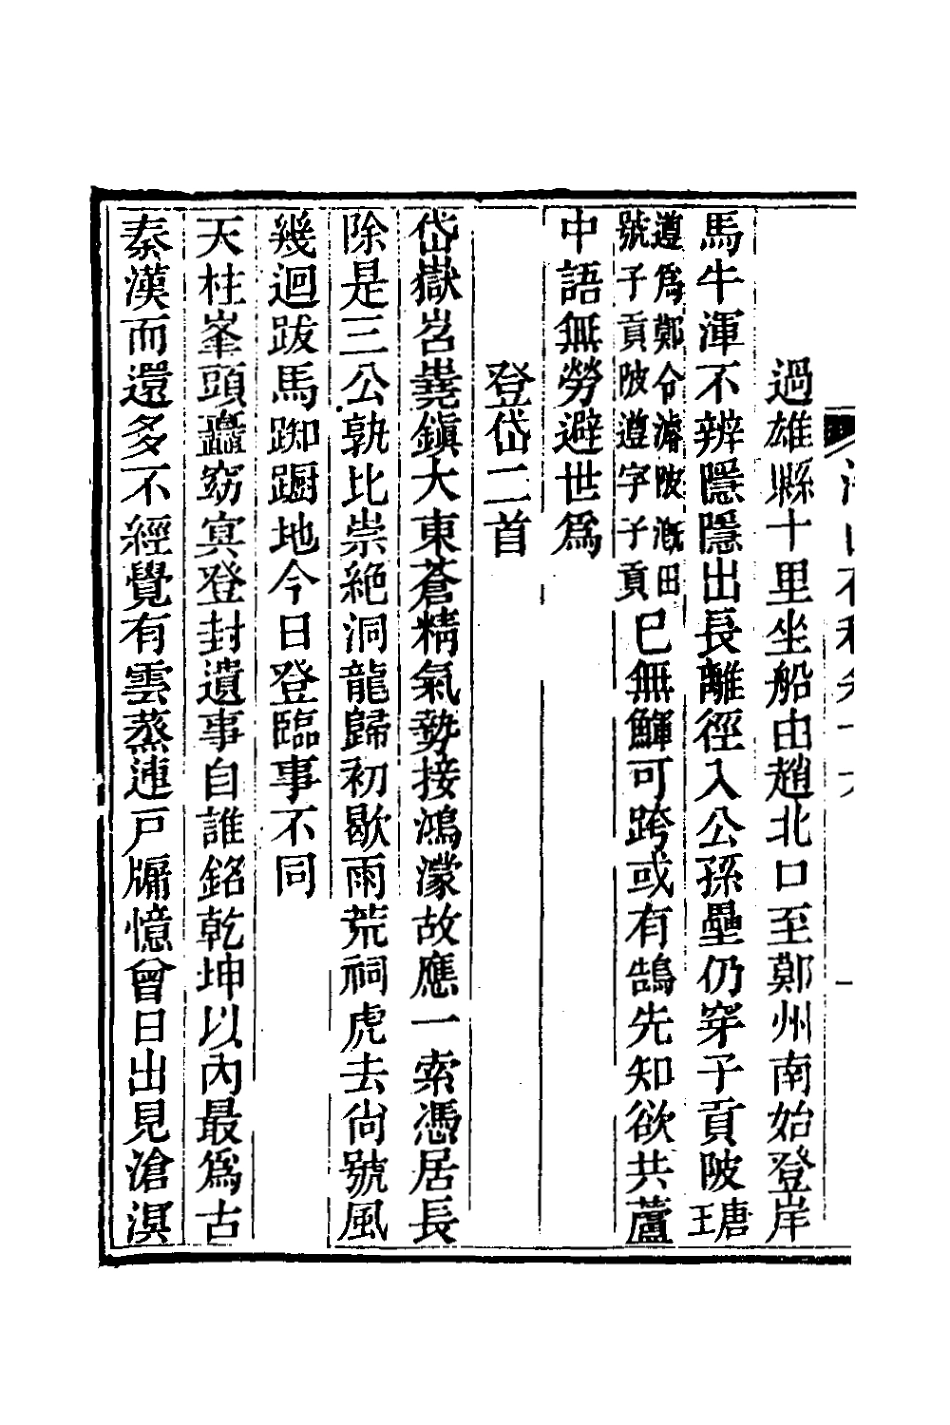 過雄縣十里坐船由趙北口至鄭州南始登岸
馬牛渾不辨隱隱出長離徑入公孫壘仍穿子貢陂唐王
遵爲鄭令濬陂漑田
號子貢陂遵字子貢
已無鱓可跨或有鵠先知欲共蘆
中語無勞避世爲
登岱二首
岱嶽岧嶤鎭大東蒼精氣勢接鴻濛故應一索憑居長
除是三公孰比崇絶洞龍歸初歇雨荒祠虎去尙號風
幾迴跋馬踟躕地今日登臨事不同
天柱峯頭矗窈冥登封遺事自誰銘乾坤以內最爲古
秦漢而還多不經覺有雲蒸連戸牖憶曾日出見滄溟